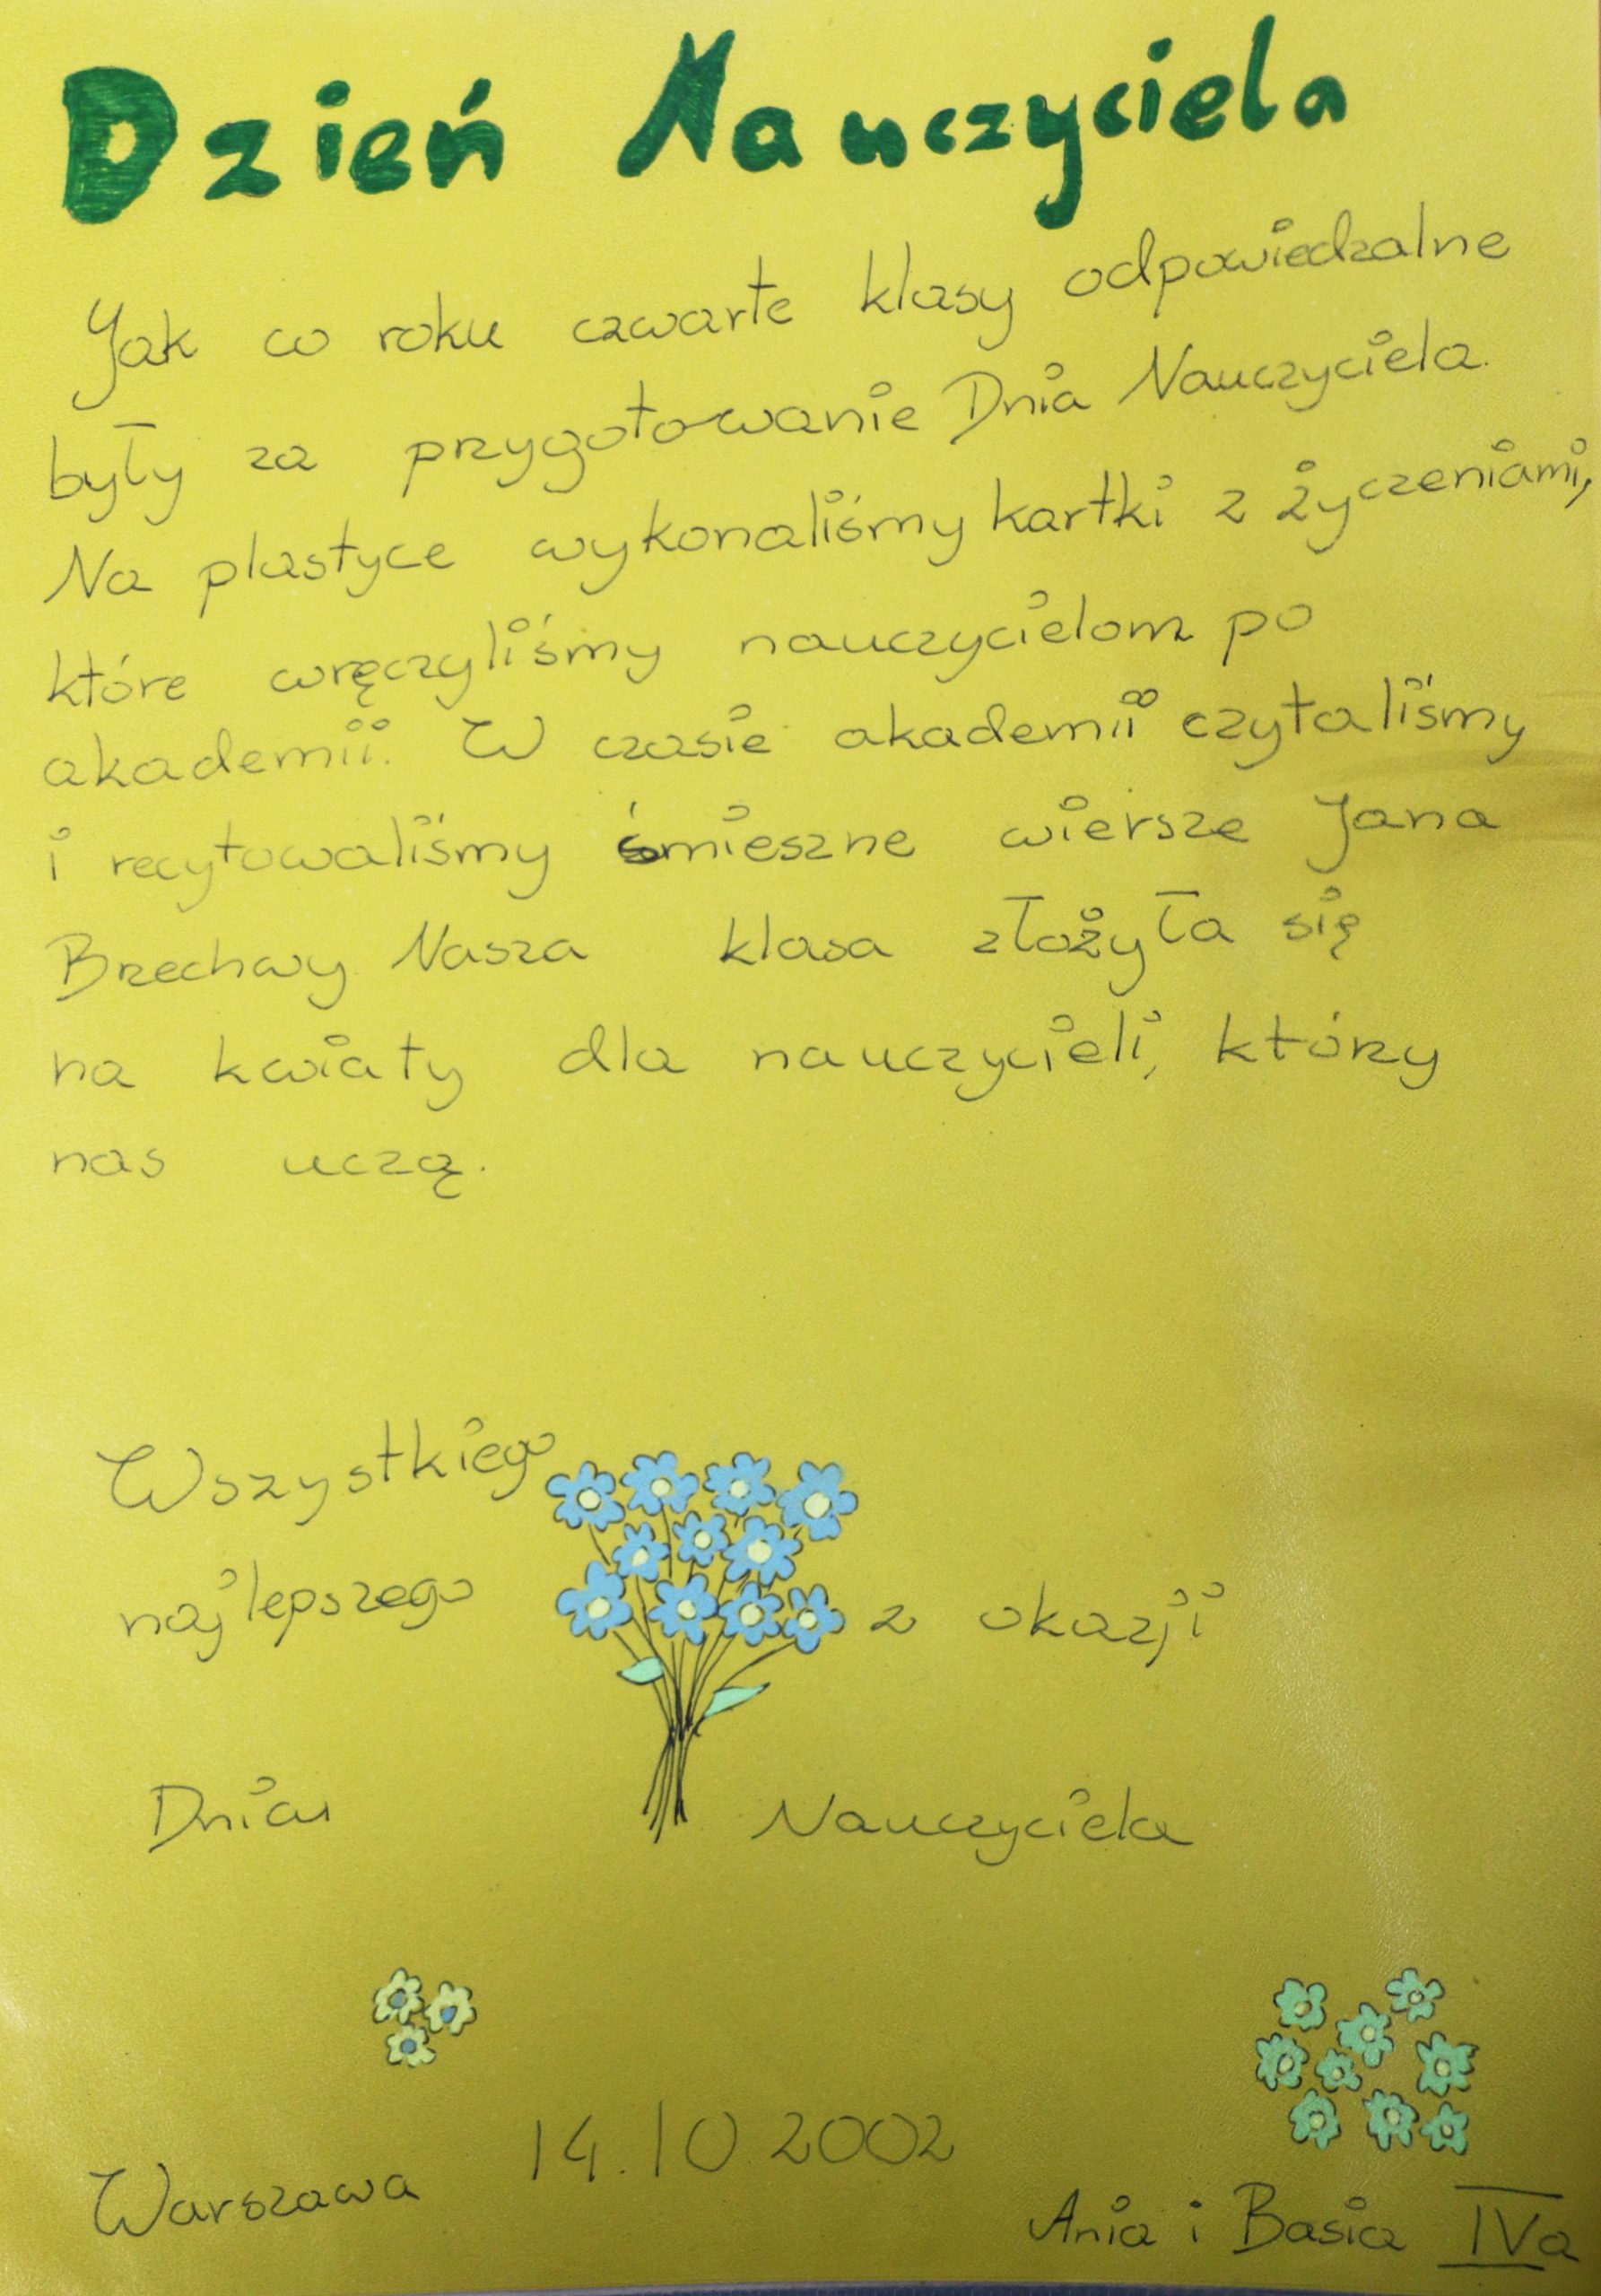 Dzień Nauczyciela
Jak co roku czwarte klasy odpowiedzalne
były za przygotowanie Dnia Nauczyciela.
Na plastyce wykonaliśmy kartki z życzeniami,
które wręczyliśmy nauczycielom po
akademii. W czasie akademii czytaliśmy
i recytowaliśmy śmieszne wiersze Jana
Brzechwy Nasza klasa złożyła się
na kwiaty dla nauczycieli, którzy
nas uczą.
Wszystkiego
najlepszego z okazji
Dniu Nauczyciela
14.10.2002
Warszawa
Ania i Basia IVa